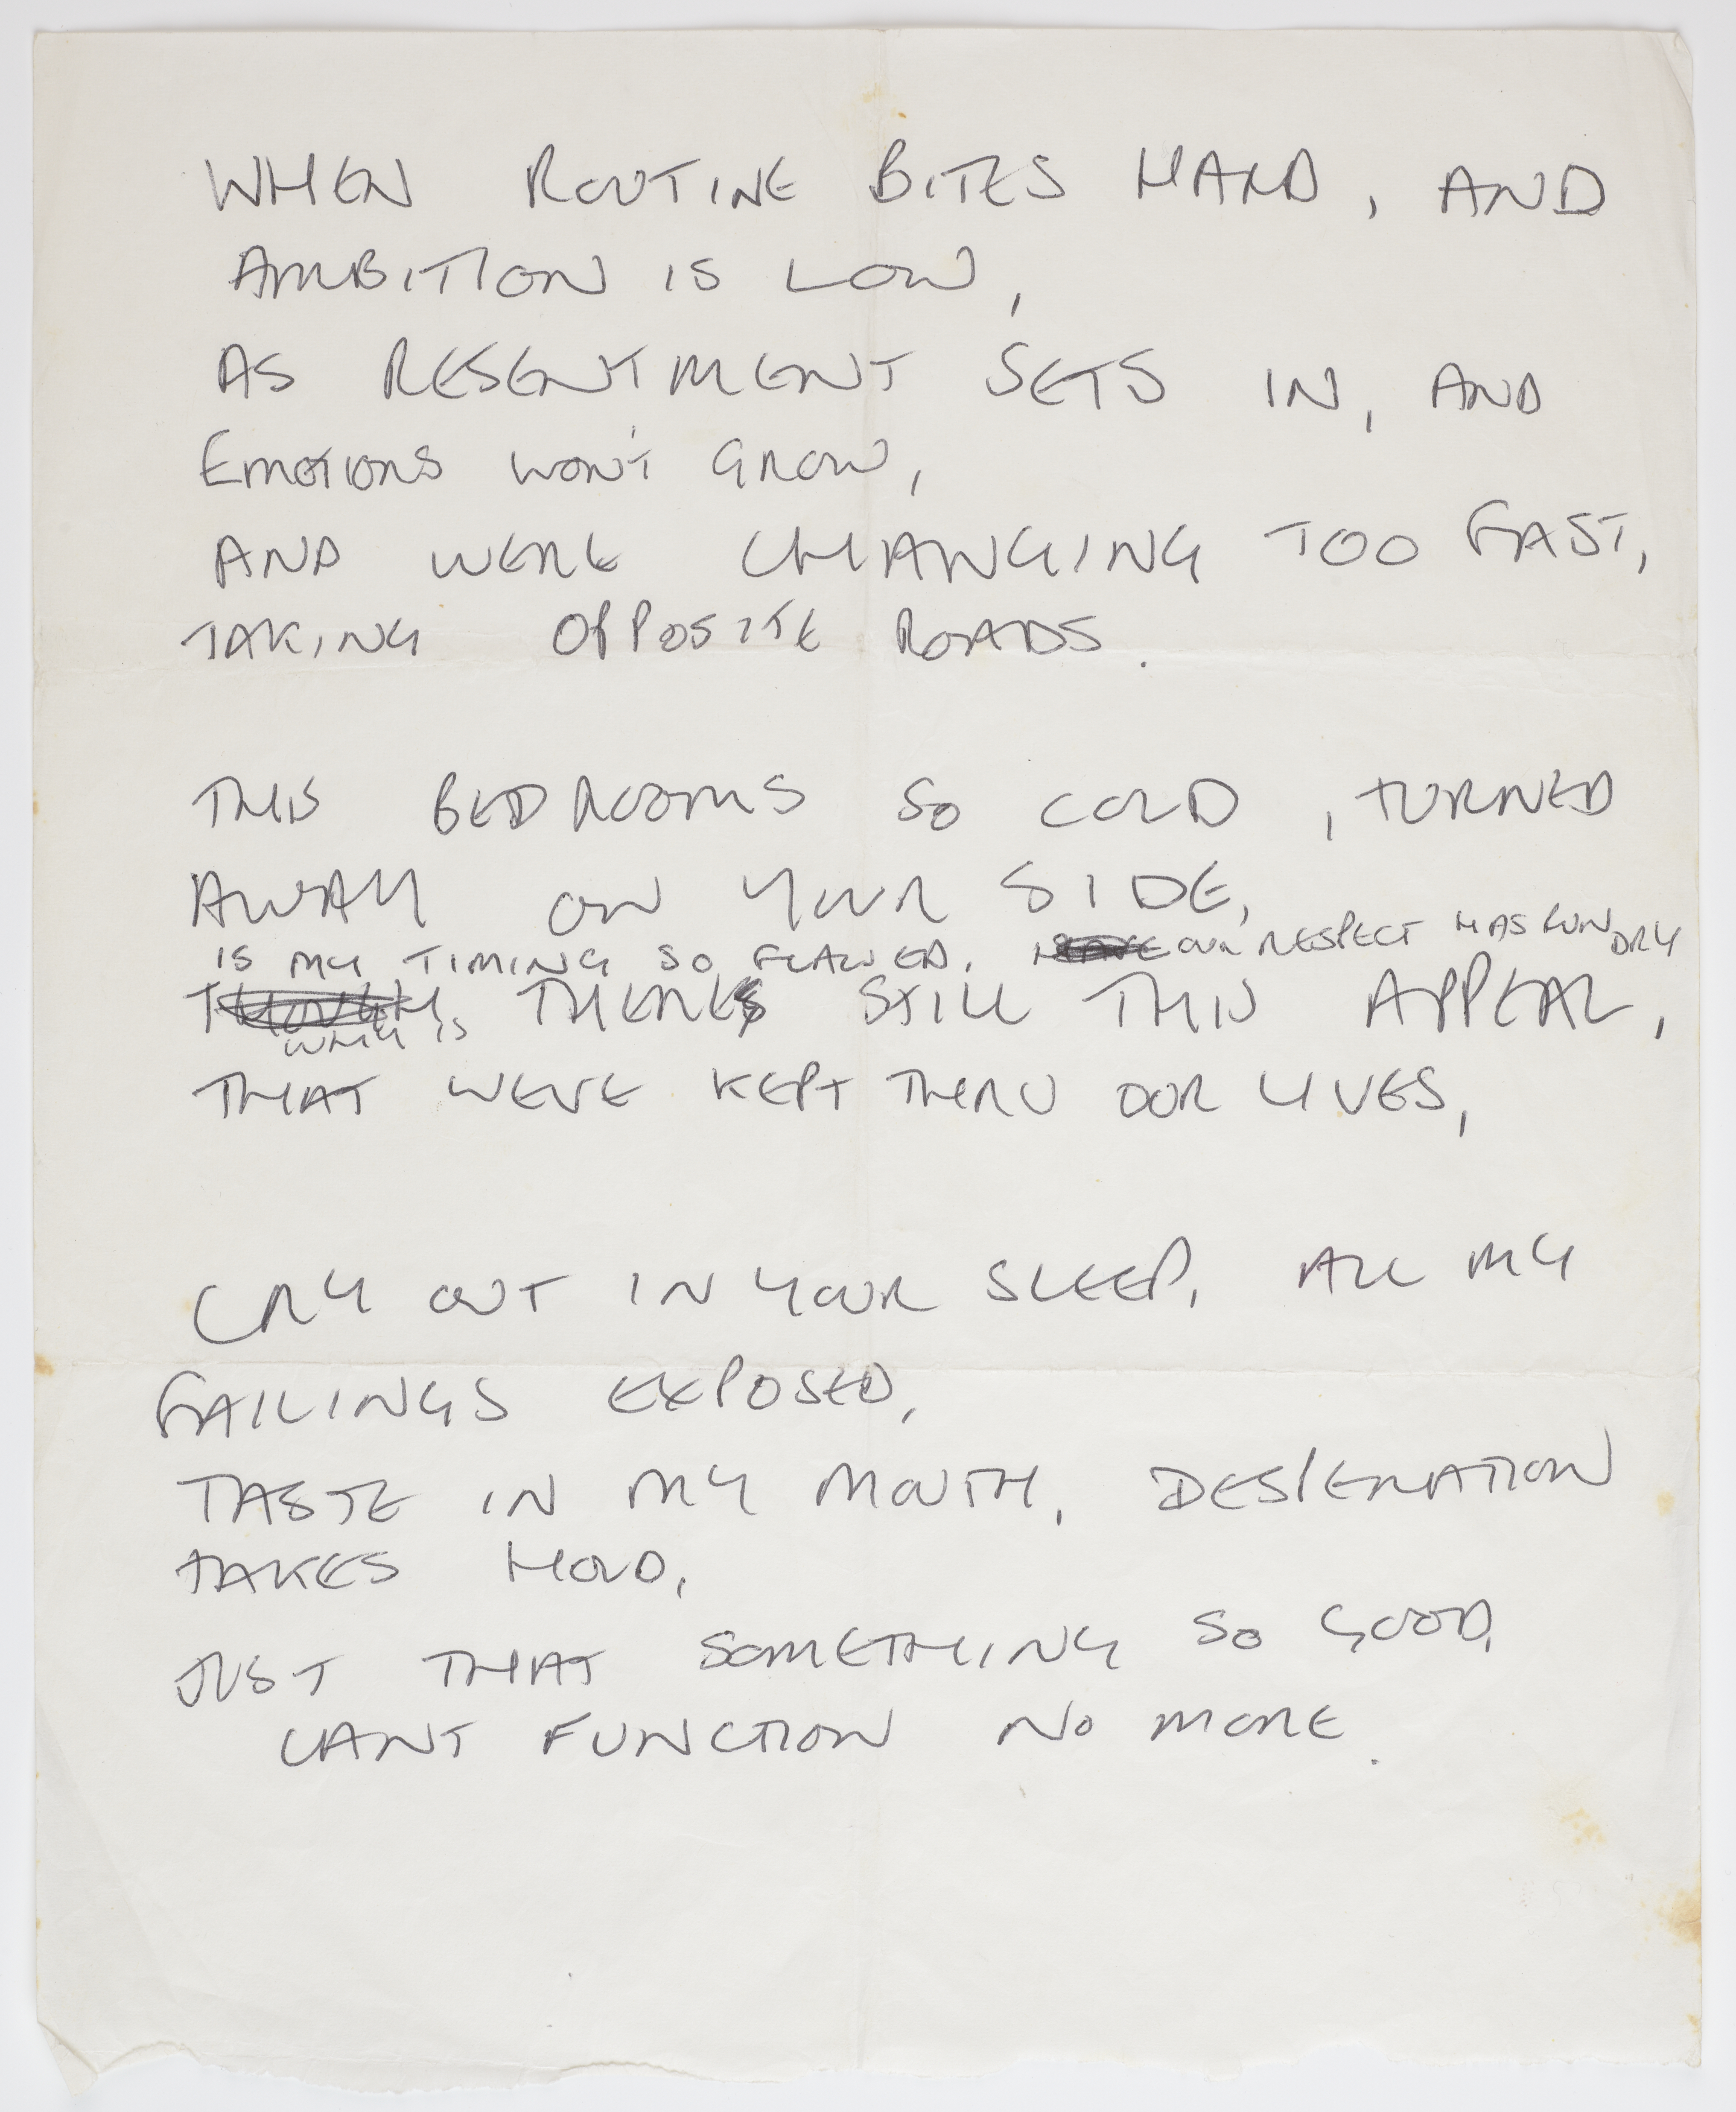 WHEN ROUTINE BITES HARD, AND
AMBITION IS LOW,
AS RESENTMENT SETS IN, AND
EMOTIONS WON'T GROW,
AND WERE CHANGING TOO FAST,
TAKING OPPOSITE ROADS.
THIS BEDROOMS SO COLD, TURNED
AWAY ON YOUR SIDE,
IS MY TIMING SO FLAWED. OUR RESPECT HAS RUN DRY
THOUGH THERES STILL THIS APPEAL,
WHY IS
THAT WEVE KEPT THRU OUR LIVES,
CRY OUT IN YOUR SLEEP, ALL MY
FAILINGS EXPOSED,
TASTE IN MY MOUTH, DESPERATION
TAKES HOLD,
JUST THAT SOMETHING SO GOOD,
CANT FUNCTION NO MORE.